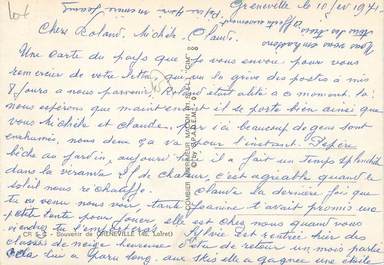 Greneville le 10 fev 1971
Chers Roland, Michèle, Claude.
Une carte du pays que je vous envoi pour vous
remercier de votre lettre qui vu la grève des postes a mis
8 jours a nous parvenir, Roland était alité a ce moment la.
nous espérons que maintenant il se porte bien ainsi que
vous Michèle et Claude, par ici beaucoup de gens sont
enrhumés, nous deux ça va pour l'instant. Pépère
bêche au jardin, aujourd'hui il a fait un temps splendide
dans la veranda de chaleur, c'est agréable quand le
soleil nous réchauffe. Claude la dernière fois que
tu es venu nous voir tante Janine t'avait promis une
petite tente pour jouer elle est chez nous quand vous
viendrez tu l'emporteras. Sylvie est rentrée hier des
classes de neige heureuse d'être de retour un mois parti
cela lui a paru long, aux skis elle a gagnée une étoile
COMBIER IMPRIMEUR MACON "CIM"
CR - Souvenir de GRENEVILLE (Loiret)